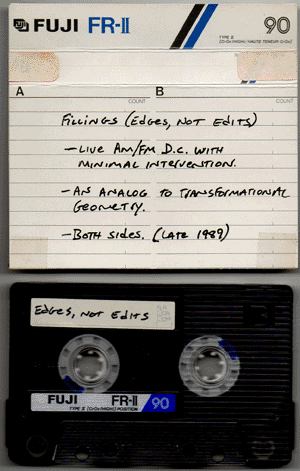 FUJI FR-II 90
TYPE II
A B
COUNT COUNT
FILLINGS (EDGES, NOT EDITS)
- LIVE AM/FM D.C. WITH
MINIMAL INTERVENTION.
- AN ANALOG TO TRANSFORMATIONAL
GEOMETRY.
- BOTH SIDES. (LATE 1989)
EDGES, NOT EDITS
FUJI FR-II 90
TYPE II [CrO2/HIGH] POSITION